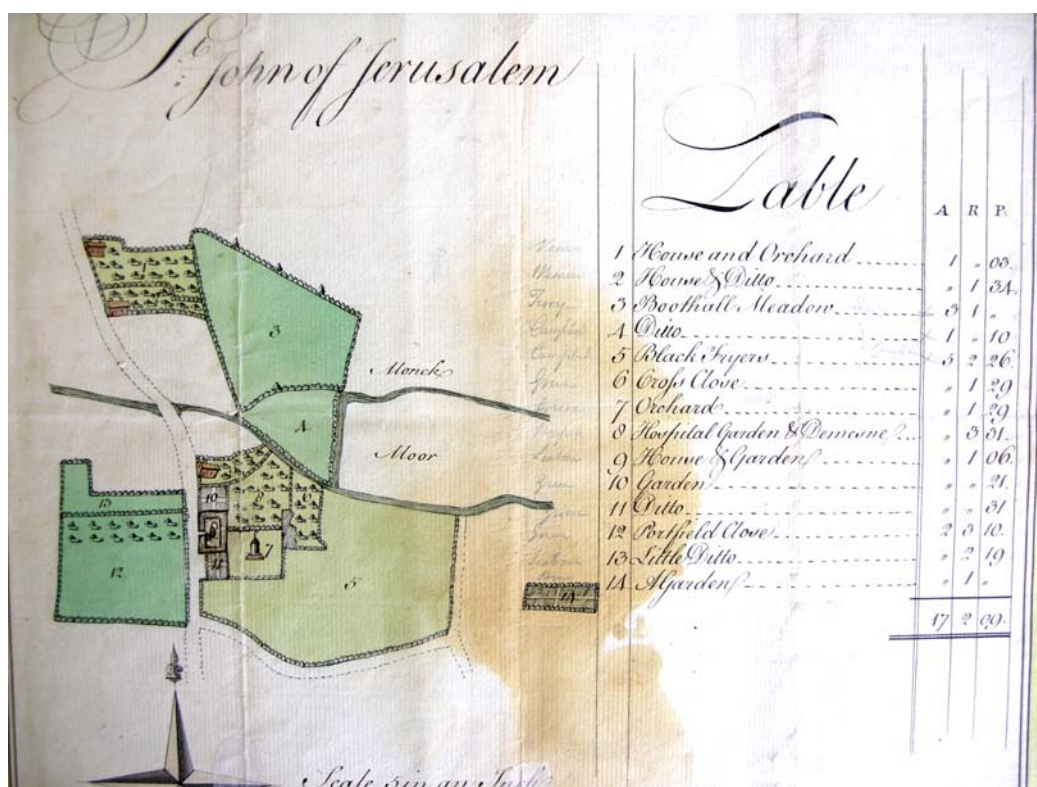 St. John of Jerusalem
Table
A R P.
1 House and Orchard 1 „ 03.
2 House & Ditto „ 1 34.
3 Boothall Meadow 3 1 „
4 Ditto 1 „ 10
5 Black Fryers 5 2 26.
6 Cross Close „ 1 29
7 Orchard „ 1 29
8 Hospital Garden & Demesne „ 3 31.
9 House & Garden „ 1 06.
10 Garden „ „ 21.
11 Ditto „ „ 31
12 Portfield Close 2 3 10.
13 Little Ditto „ 2 19
14 A Garden „ 1 „
17 2 09.
1
2
3
Monck
4
Moor
13
10
8
6
9
12
11
7
5
14
Scale 5 in an Inch